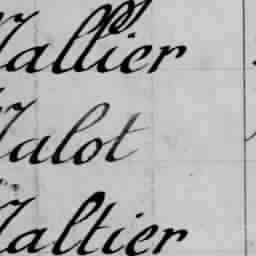 Mallier
Malot
Maltier